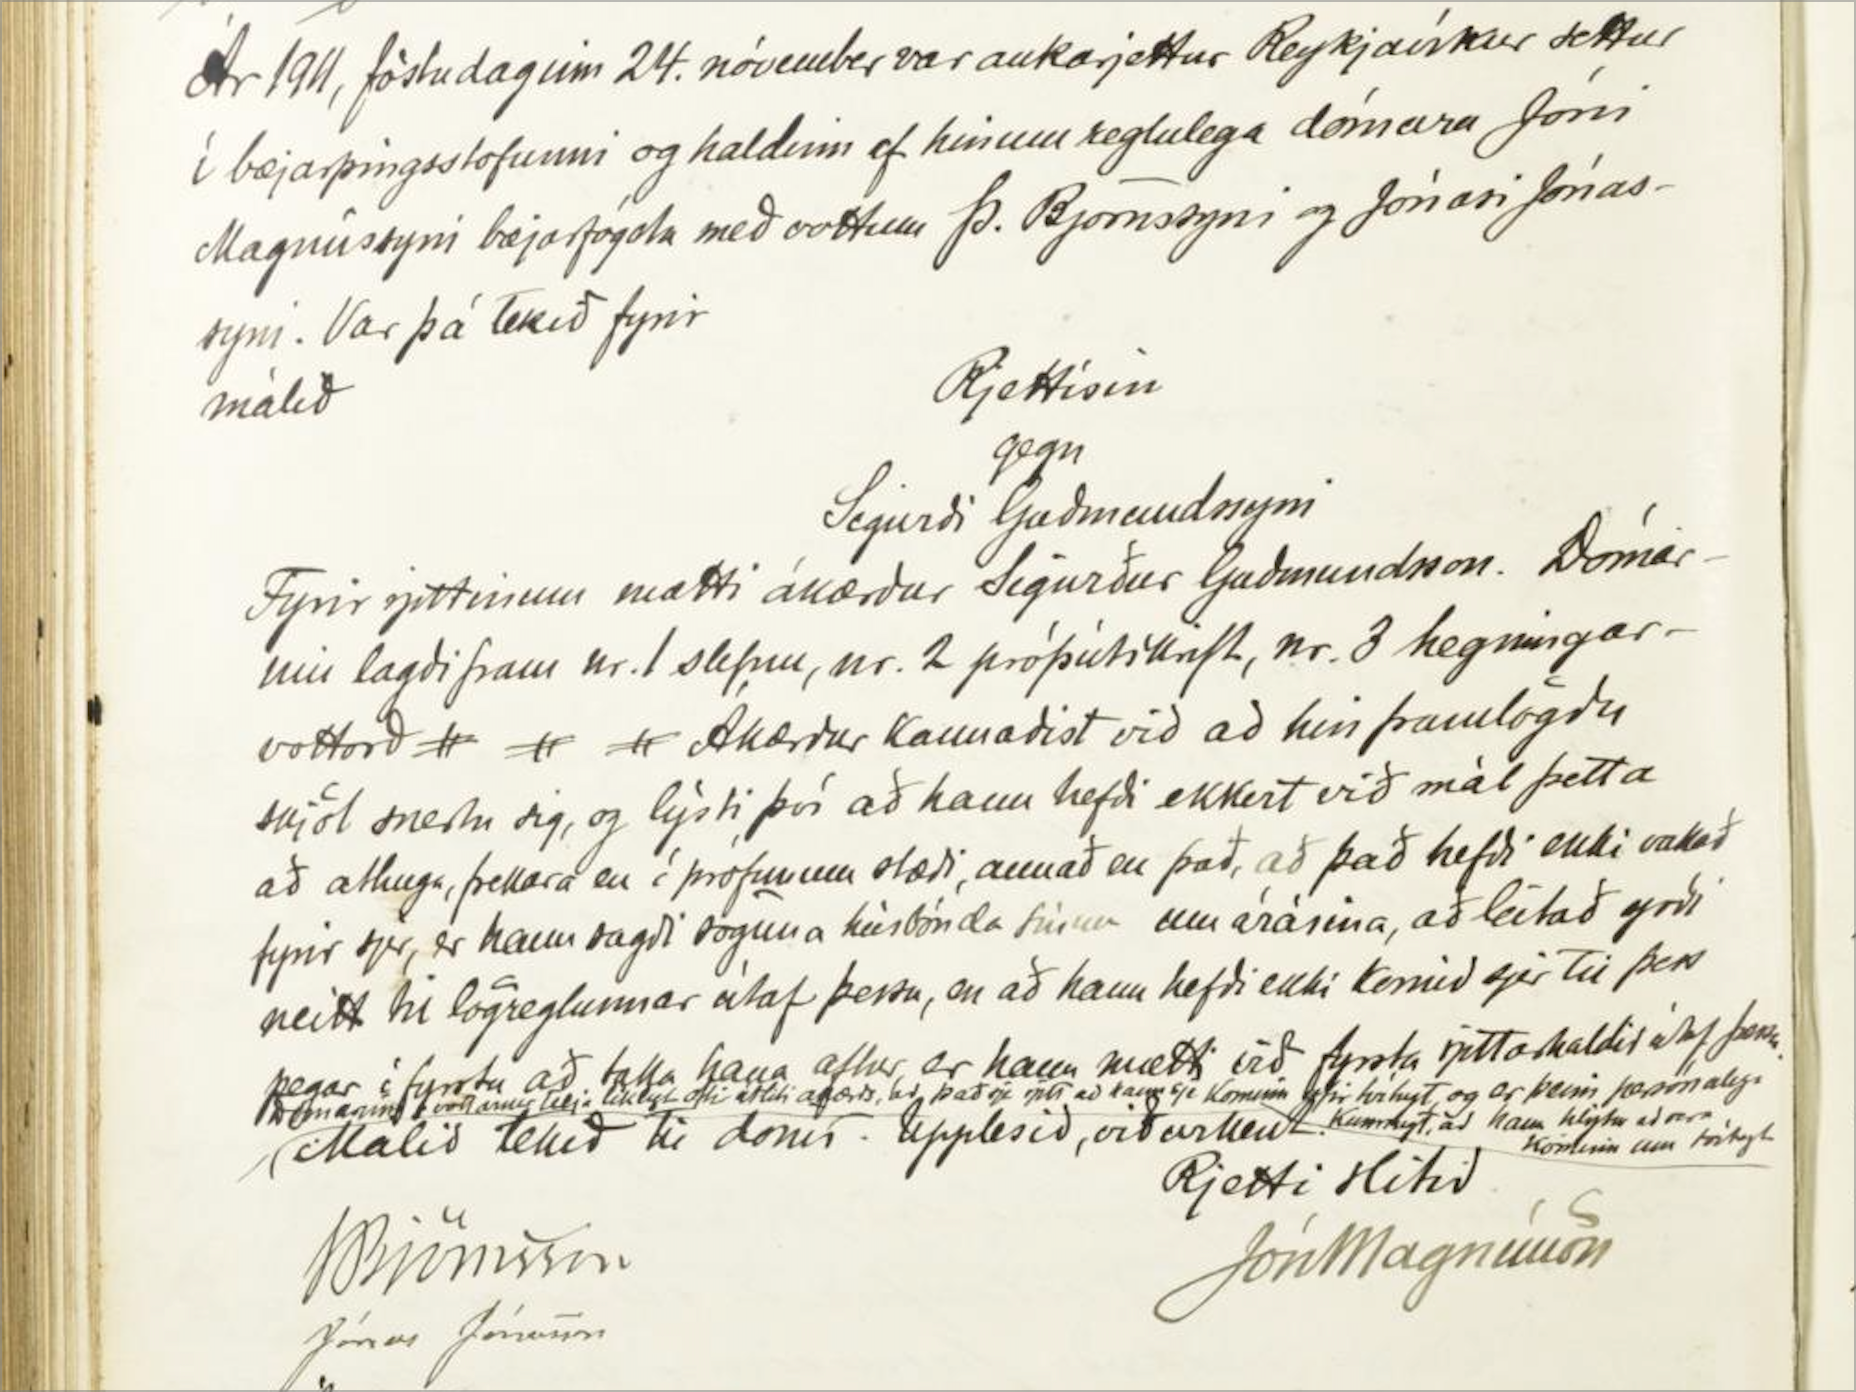 Ár 1911, föstudaginn 24. nóvember var aukarjettur Reykjavíkur settur
í bæjarþingsstofunni og haldinn af hinum reglulega dómara Jóni
Magnússyni bæjarfógeta með vottum Þ. Björnssyni og Jónasi Jónas-
syni. Var þá tekið fyrir
málið
Rjettvísin
gegn
Sigurði Guðmundssyni
Fyrir rjettinum mætti ákærður Sigurður Guðmundsson. Dómar-
inn lagði fram nr. 1 stefnu, nr. 2 prófsútskrift, nr. 3 hegningar-
vottorð Ákærður kannaðist við að hin framlögðu
skjöl snertu sig, og lýsti því að hann hefði ekkert við mál þetta
að athuga, frekara en í prófunum stæði, annað en það, að það hefði ekki vakað
fyrir sjer, er hann sagði söguna húsbónda sínum um árásina, að leitað yrði
neitt til lögreglunnar útaf þessu, en að hann hefði ekki komið sjer til þess
þegar í fyrstu að taka hana aftur, er hann mætti við fyrsta rjettarhaldið útaf þessu.
Dómarinn og vottarnir telja líklegt eftir útliti ákærðs, að það sje rjett að hann sje kominn yfir tvítugt, og er þeim persónulega
kunnugt, að hann hlýtur að vera
kominn um tvítugt
Málið tekið til dóms. Upplesið, viðurkent.
Rjetti slitið
Jón Magnússon
ÞBjörnsson
Jónas Jónasson